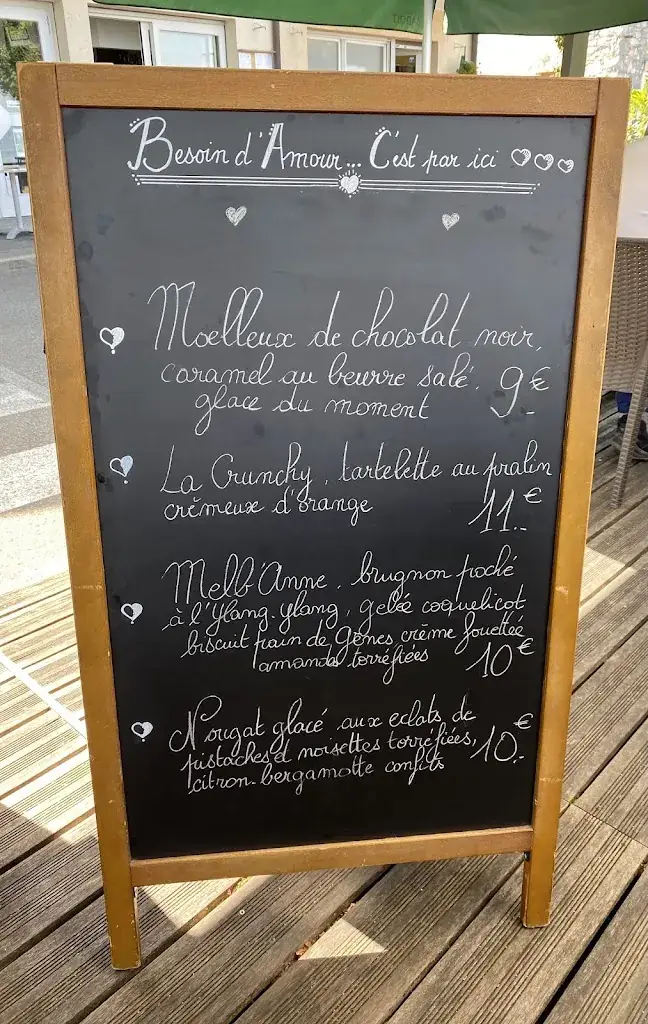 Besoin d'Amour... C'est par ici
Moelleux de chocolat noir,
caramel au beurre salé. 9€
glace du moment
La Crunchy, tartelette au pralin
crémeux d'orange 11.-€
Melb'Anne, brugnon poché
à l'Ylang-ylang, gelée coquelicot
biscuit pain de Gênes crème fouettée
amandes torréfiées 10€
Nougat glacé aux eclats de
pistaches et noisettes torréfiées, 10.-€
citron-bergamotte confits